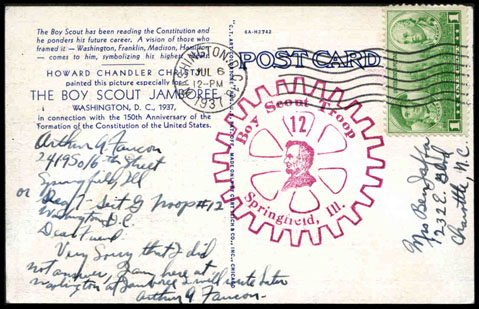 The Boy Scout has been reading the Constitution and
he ponders his future career. A vision of those who
framed it — Washington, Franklin, Madison, Hamilton
— comes to him, symbolizing his highest
HOWARD CHANDLER CHRISTY
painted this picture especially for
THE BOY SCOUT JAMBOREE
WASHINGTON, D. C., 1937,
in connection with the 150th Anniversary of the
Formation of the Constitution of the United States.
6A-H2742
POST CARD
WASHINGTON, D.C.
JUL 6
12-PM
1937
Boy Scout Troop
12
Springfield, Ill.
1
1
Arthur G Fawcon
2419 So 16th Street
Springfield, Ill
or Troop #12
Washington D.C.
Dear Friend.
Very Sorry that I did
not answer, I am here at
Washington at Jamboree I will write later
Arthur G Fawcon
Mrs
1232 E.
Charlotte, N.C.